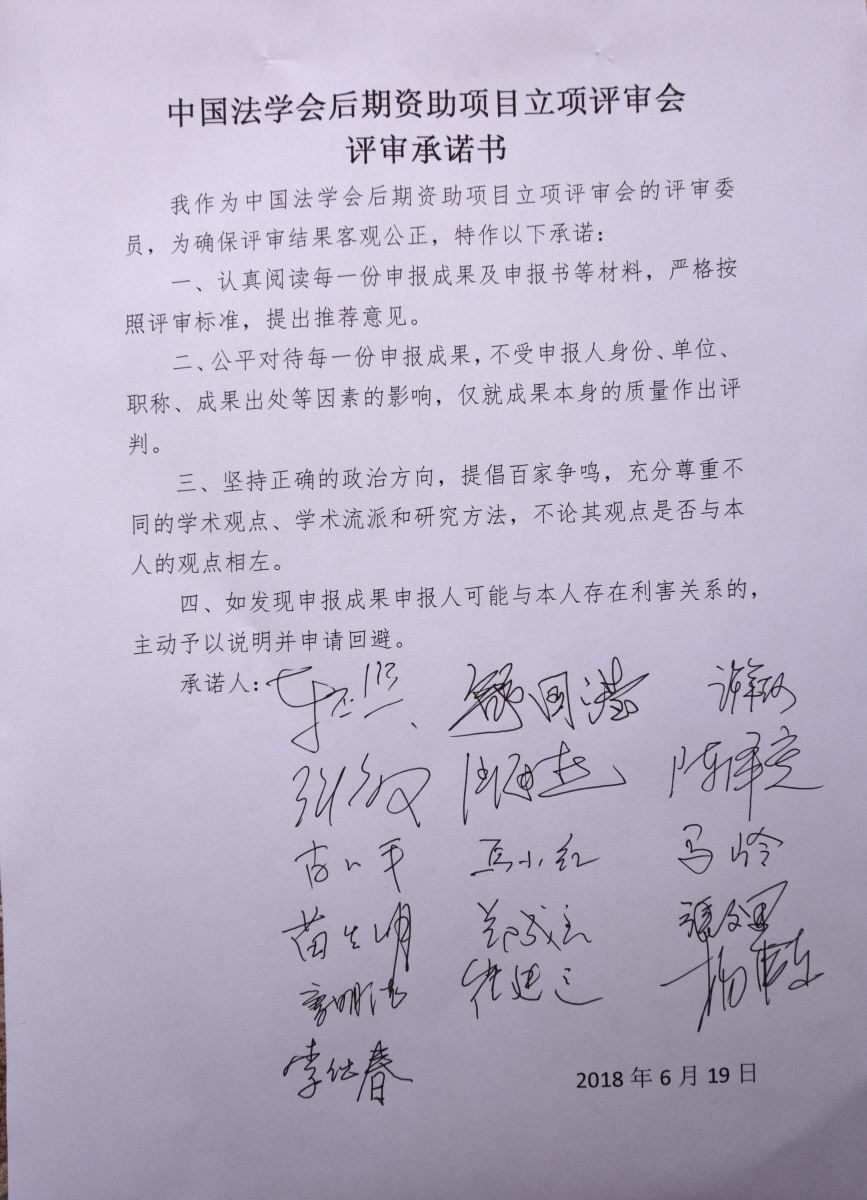 中国法学会后期资助项目立项评审会
评审承诺书
我作为中国法学会后期资助项目立项评审会的评审委
员，为确保评审结果客观公正，特作以下承诺：
一、认真阅读每一份申报成果及申报书等材料，严格按
照评审标准，提出推荐意见。
二、公平对待每一份申报成果，不受申报人身份、单位、
职称、成果出处等因素的影响，仅就成果本身的质量作出评
判。
三、坚持正确的政治方向，提倡百家争鸣，充分尊重不
同的学术观点、学术流派和研究方法，不论其观点是否与本
人的观点相左。
四、如发现申报成果申报人可能与本人存在利害关系的，
主动予以说明并申请回避。
承诺人：
陈泽宪
马小红 马岭
苗生明 郑成良
李仕春
2018 年 6 月 19 日